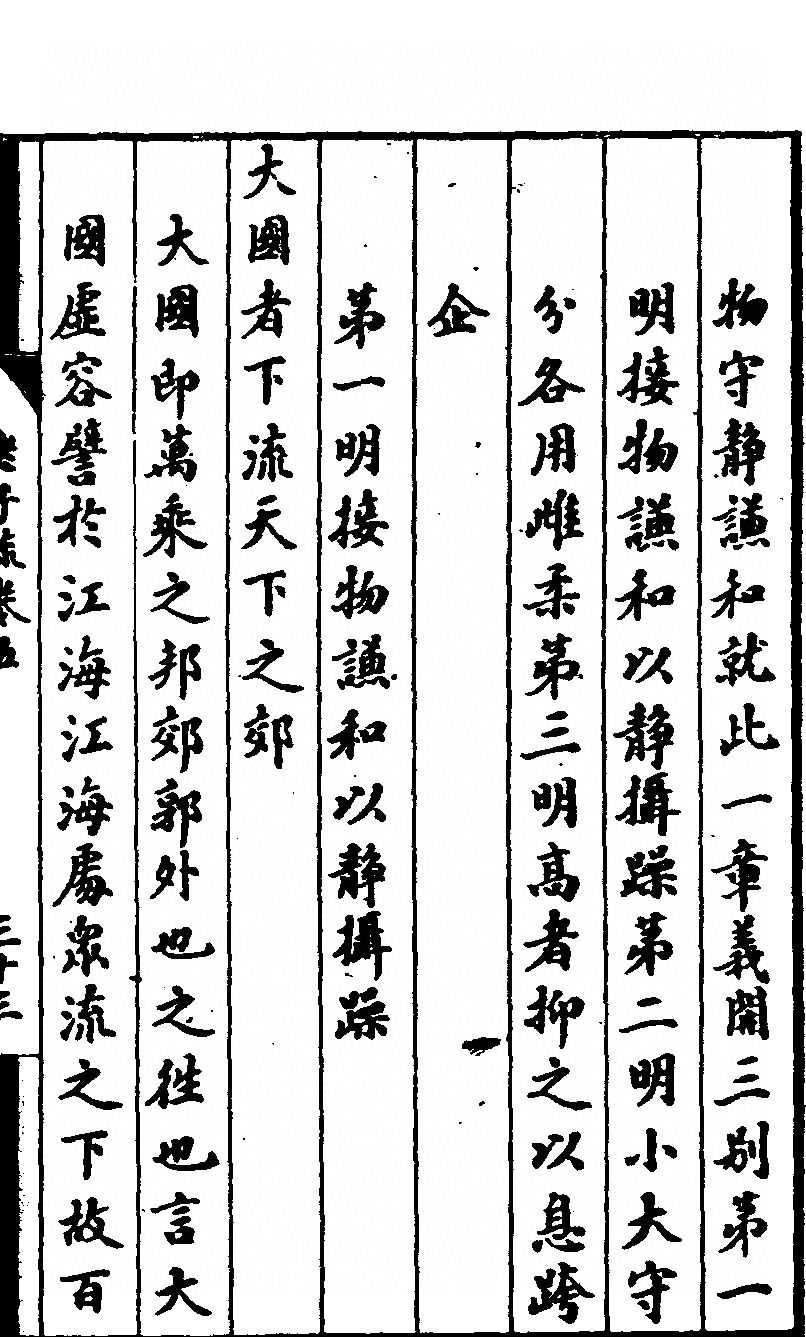 物守静謙和就此一章義開三别第一
明接物謙和以静攝躁第二明小大守
分各用雌柔第三明高者抑之以息跨
企
第一明接物謙和以静攝躁
大國者下流天下之郊
大國即萬乘之邦郊郭外也之徃也言大
國虛容譬於江海江海處衆流之下故百